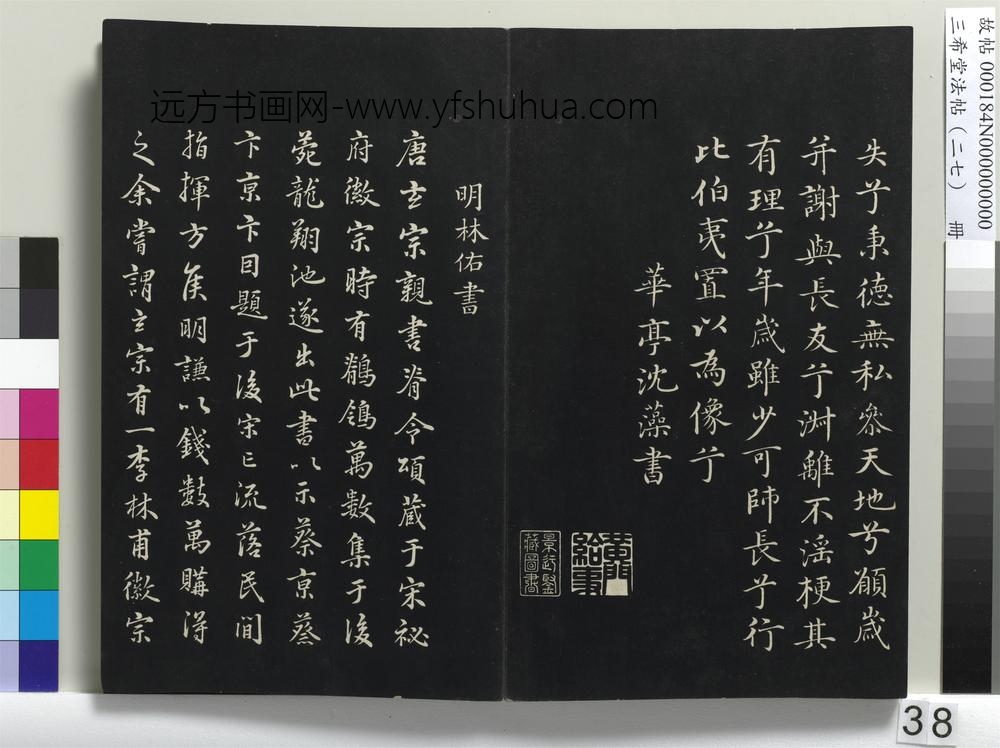 失兮秉德無私參天地兮願歲
并謝與長友兮淑離不淫梗其
有理兮年歲雖少可師長兮行
比伯夷置以為像兮
華亭沈藻書
黃門給事
景行鑒藏圖書
明林佑書
唐玄宗親書脊令頌藏于宋祕
府徽宗時有鶺鴒萬數集于後
苑龍翔池遂出此書以示蔡京蔡
卞京卞因題于後宋亡流落民間
指揮方侯明謙以錢數萬購得
之余嘗謂玄宗有一李林甫徽宗
远方书画网-www.yfshuhua.com
故帖 000184N000000000
三希堂法帖（二七） 冊
38